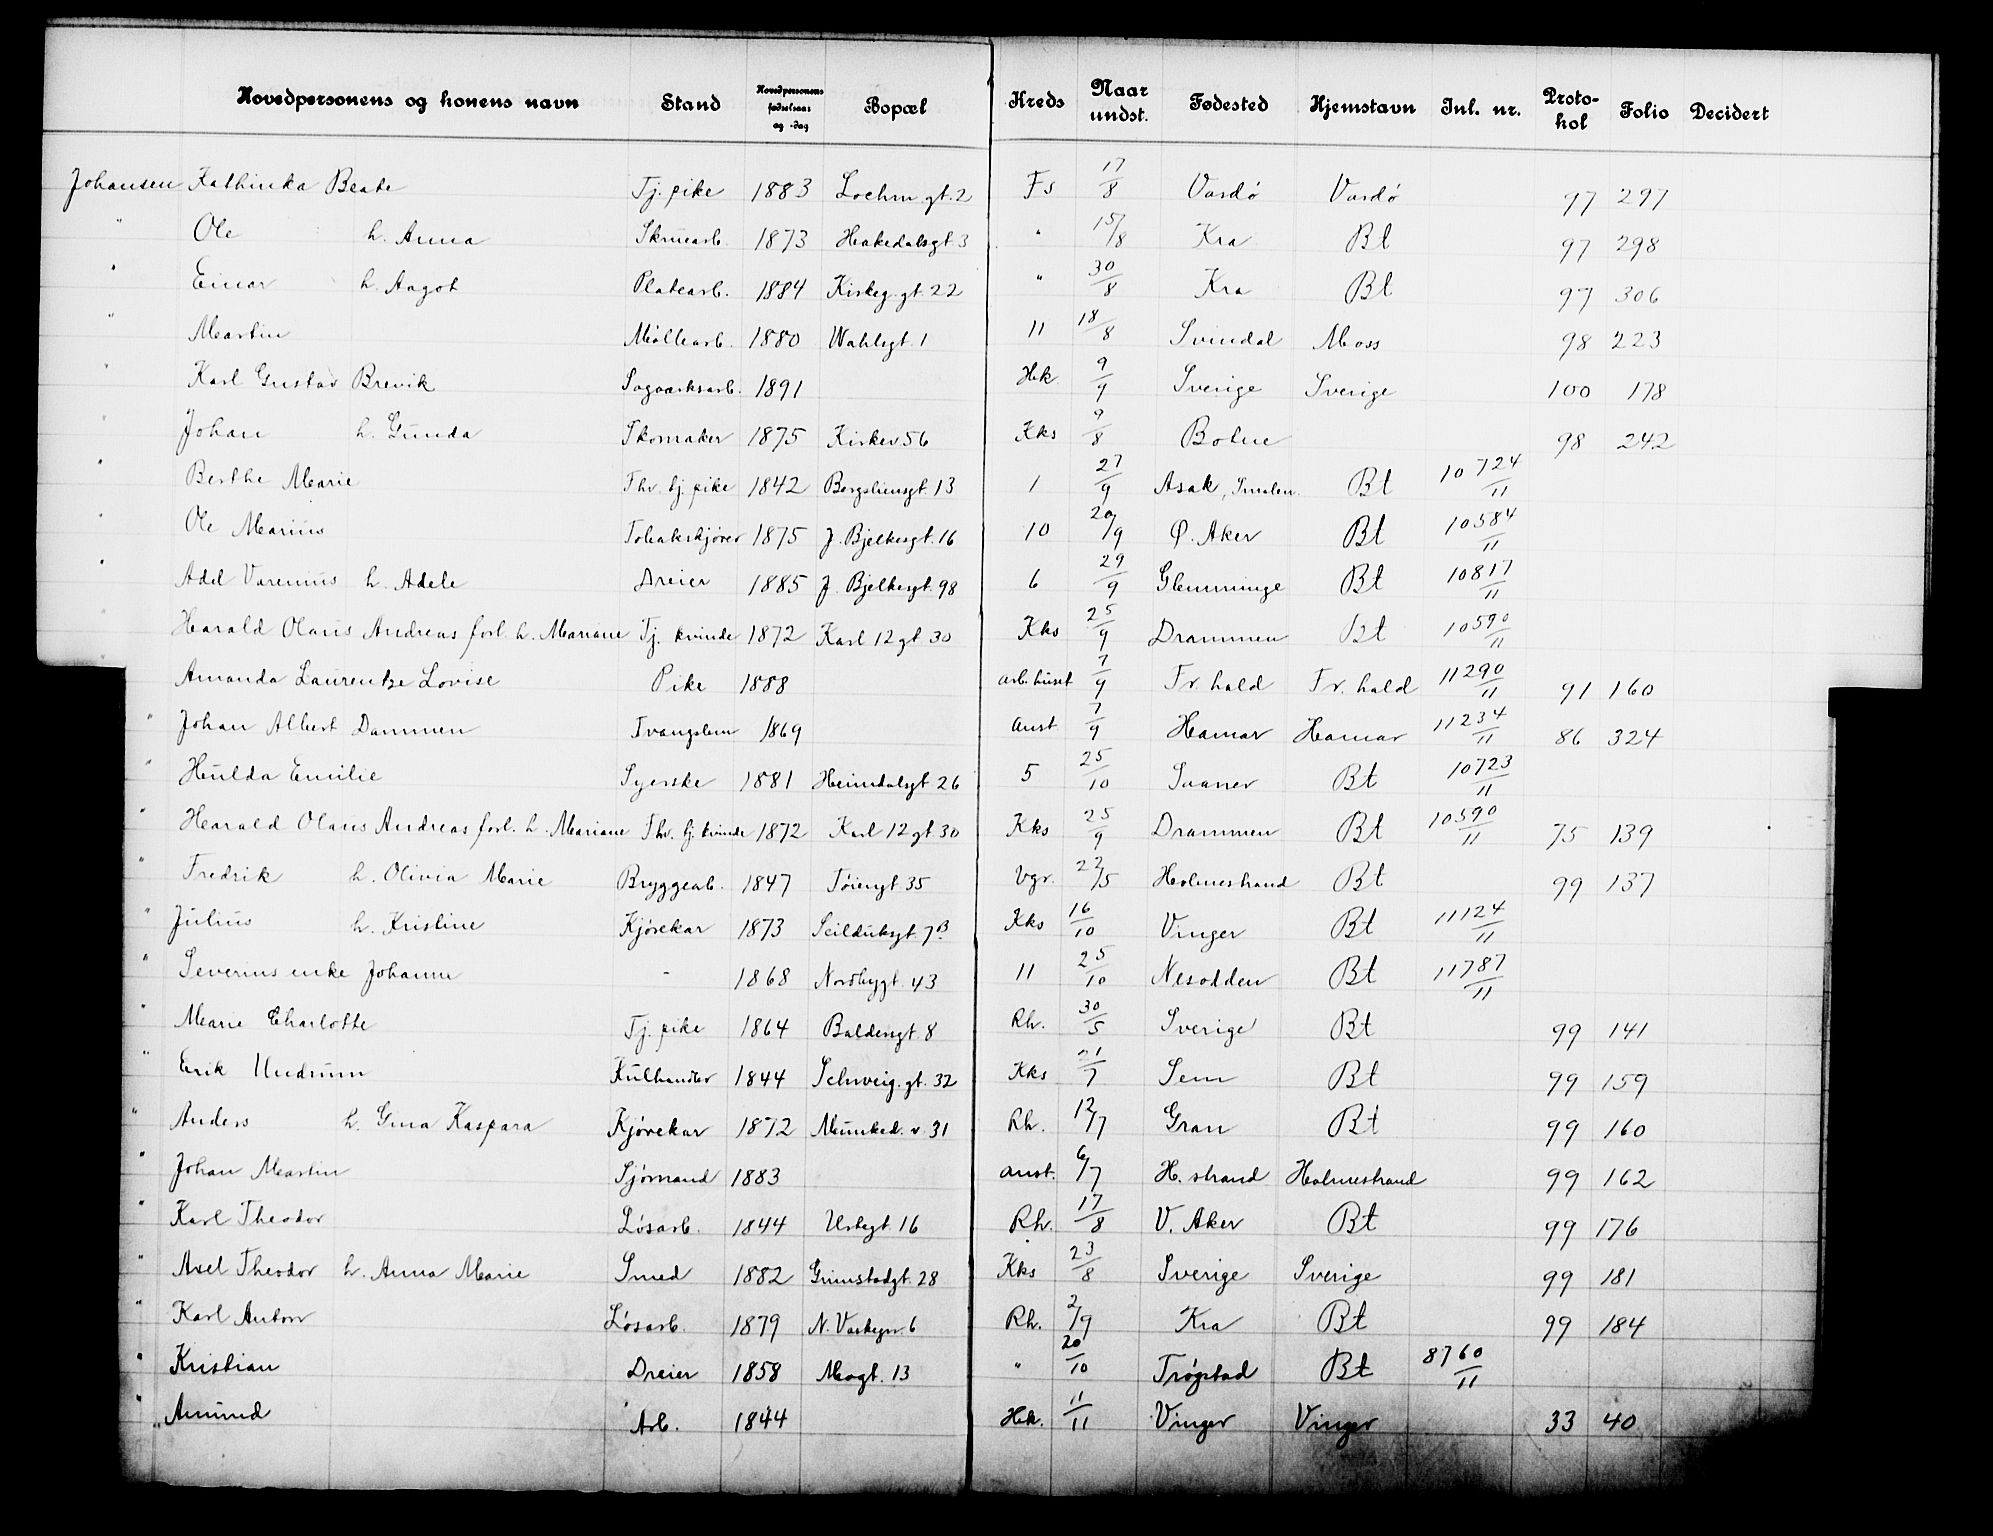 Hovedpersonens og konens navn Stand Hovedpersonens fødselsaar og -dag Bopæl Kreds Naar undst. Fødested Hjemstavn Inl. nr. Protokol Folio Decidert
Johansen Kathinka Beate Tj. pike 1883 Lochm. gt. 2 Fs 17/8 Vardø Vardø 97 297
" Ole h. Anna Skruearb. 1873 Hakedalsgt 3 " 15/8 Kra Bt 97 298
" Einar h. Aagot Platearb. 1884 Kirkeg. gt. 22 " 30/8 Kra Bt 97 306
" Martin Møllearb. 1880 Wahlsgt. 1 11 18/8 Svindal Moss 98 223
" Karl Gustav Brevik Sagverksarb. 1891 Hk. 9/9 Sverige Sverige 100 178
" Johan h. Gunda Skomaker 1875 Kirkev 56 Kks 9/8 Bolue 98 242
" Berthe Marie Fhv. tj. pike 1842 Bergsliensgt. 13 1 27/9 Asak, Smalen. Bt 10724/11
" Ole Marius Tobakskjører 1875 J. Bjelkesgt. 16 10 20/9 Ø. Aker Bt 10584/11
" Adel Varenius h. Adele Dreier 1885 J. Bjelkesgt. 98 6 29/9 Glemminge Bt 10817/11
" Harald Olaus Andreas forl. h. Mariane Tj. kvinde 1872 Karl 12 gt 30 Kks 25/9 Drammen Bt 10590/11
" Amanda Laurentze Lovise Pike 1888 arb.huset 7/9 Fr. hald Fr. hald 11290/11 91 160
" Johan Albert Dammen Tvangslem 1869 Anst 7/9 Hamar Hamar 11234/11 86 324
" Hulda Emilie Syerske 1881 Heimdalsgt 26 5 25/10 Svaner Bt 10723/11
" Harald Olaus Andreas forl. h. Mariane Fhv. tj. kvinde 1872 Karl 12 gt 30 Kks 25/9 Drammen Bt 10590/11 75 139
" Fredrik h. Olivia Marie Bryggearb. 1847 Tøiengt. 35 Vgr. 22/5 Holmestrand Bt 99 137
" Julius h. Kristine Kjørekar 1873 Seilduksgt. 7B. Kks 16/10 Vinger Bt 11124/11
" Severius enke Johanne - 1868 Nordbygt. 43 11 25/10 Nesodden Bt 11787/11
" Marie Charlotte Tj. pike 1864 Baldersgt. 8 Rh. 30/5 Sverige Bt 99 141
" Erik Undrum Kulhandler 1844 Schweig. gt. 32 Kks 21/7 Sem Bt 99 159
" Anders h. Gina Kaspara Kjørekar 1872 Munked. v. 31 Rh. 12/7 Gran Bt 99 160
" Johan Martin Sjømand 1883 Anst. 6/7 H. strand Holmestrand 99 162
" Karl Theodor Løsarb. 1844 Urtegt 16 Rh. 17/8 V. Aker Bt 99 176
" Axel Theodor h. Anna Marie Smed 1882 Grimstadgt. 28 Kks 23/8 Sverige Sverige 99 181
" Karl Anton Løsarb. 1879 N. Vaskegr. 6 Rh. 2/9 Kra Bt 99 184
" Kristian Dreier 1858 Mogt. 13 " 20/10 Trøgstad Bt 8760/11
" Amund Arb. 1844 Hk. 11/11 Vinger Vinger 33 40